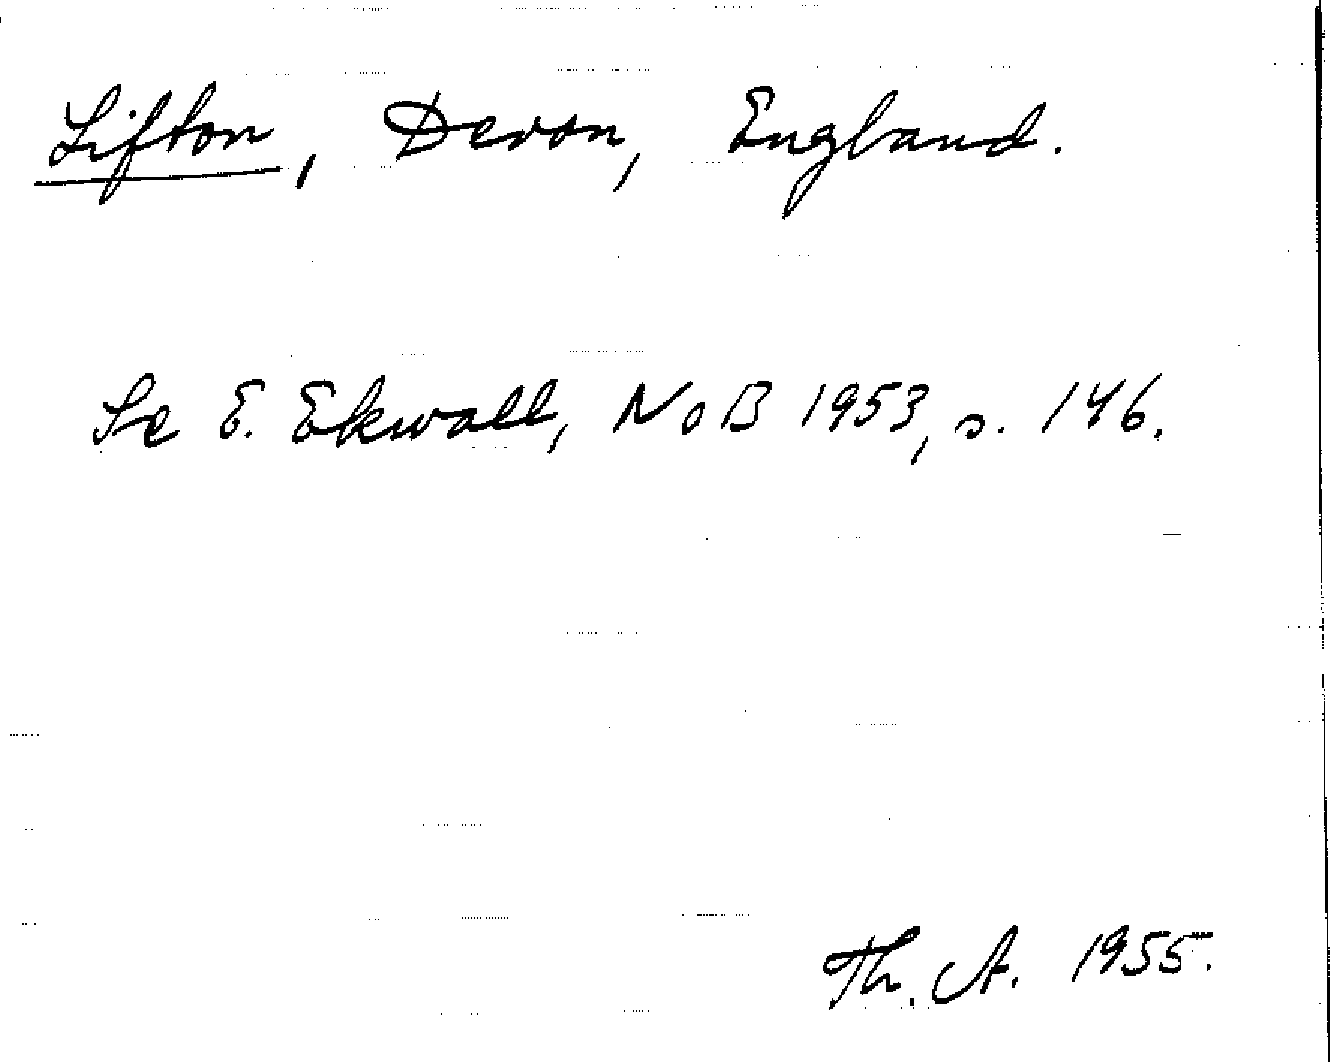 Lifton, Devon, England.
Se E. Ekwall, NoB 1953, s. 146.
Th. A. 1955.